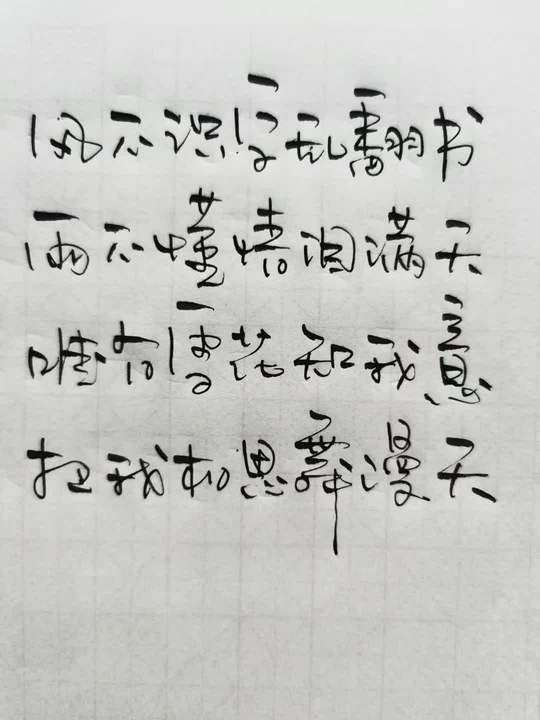 风不识字乱翻书
雨不懂情泪满天
唯有雪花知我意
把我相思舞漫天